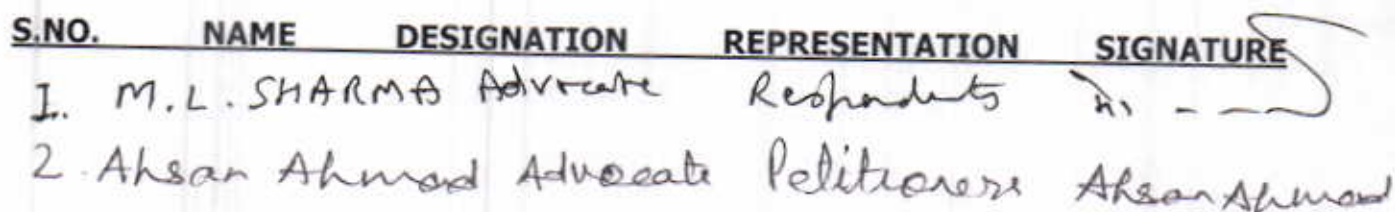 S.NO. NAME DESIGNATION REPRESENTATION SIGNATURE
1. M.L. SHARMA Advocate Respondents
2. Ahsan Ahmad Advocate Petitioners Ahsan Ahmad